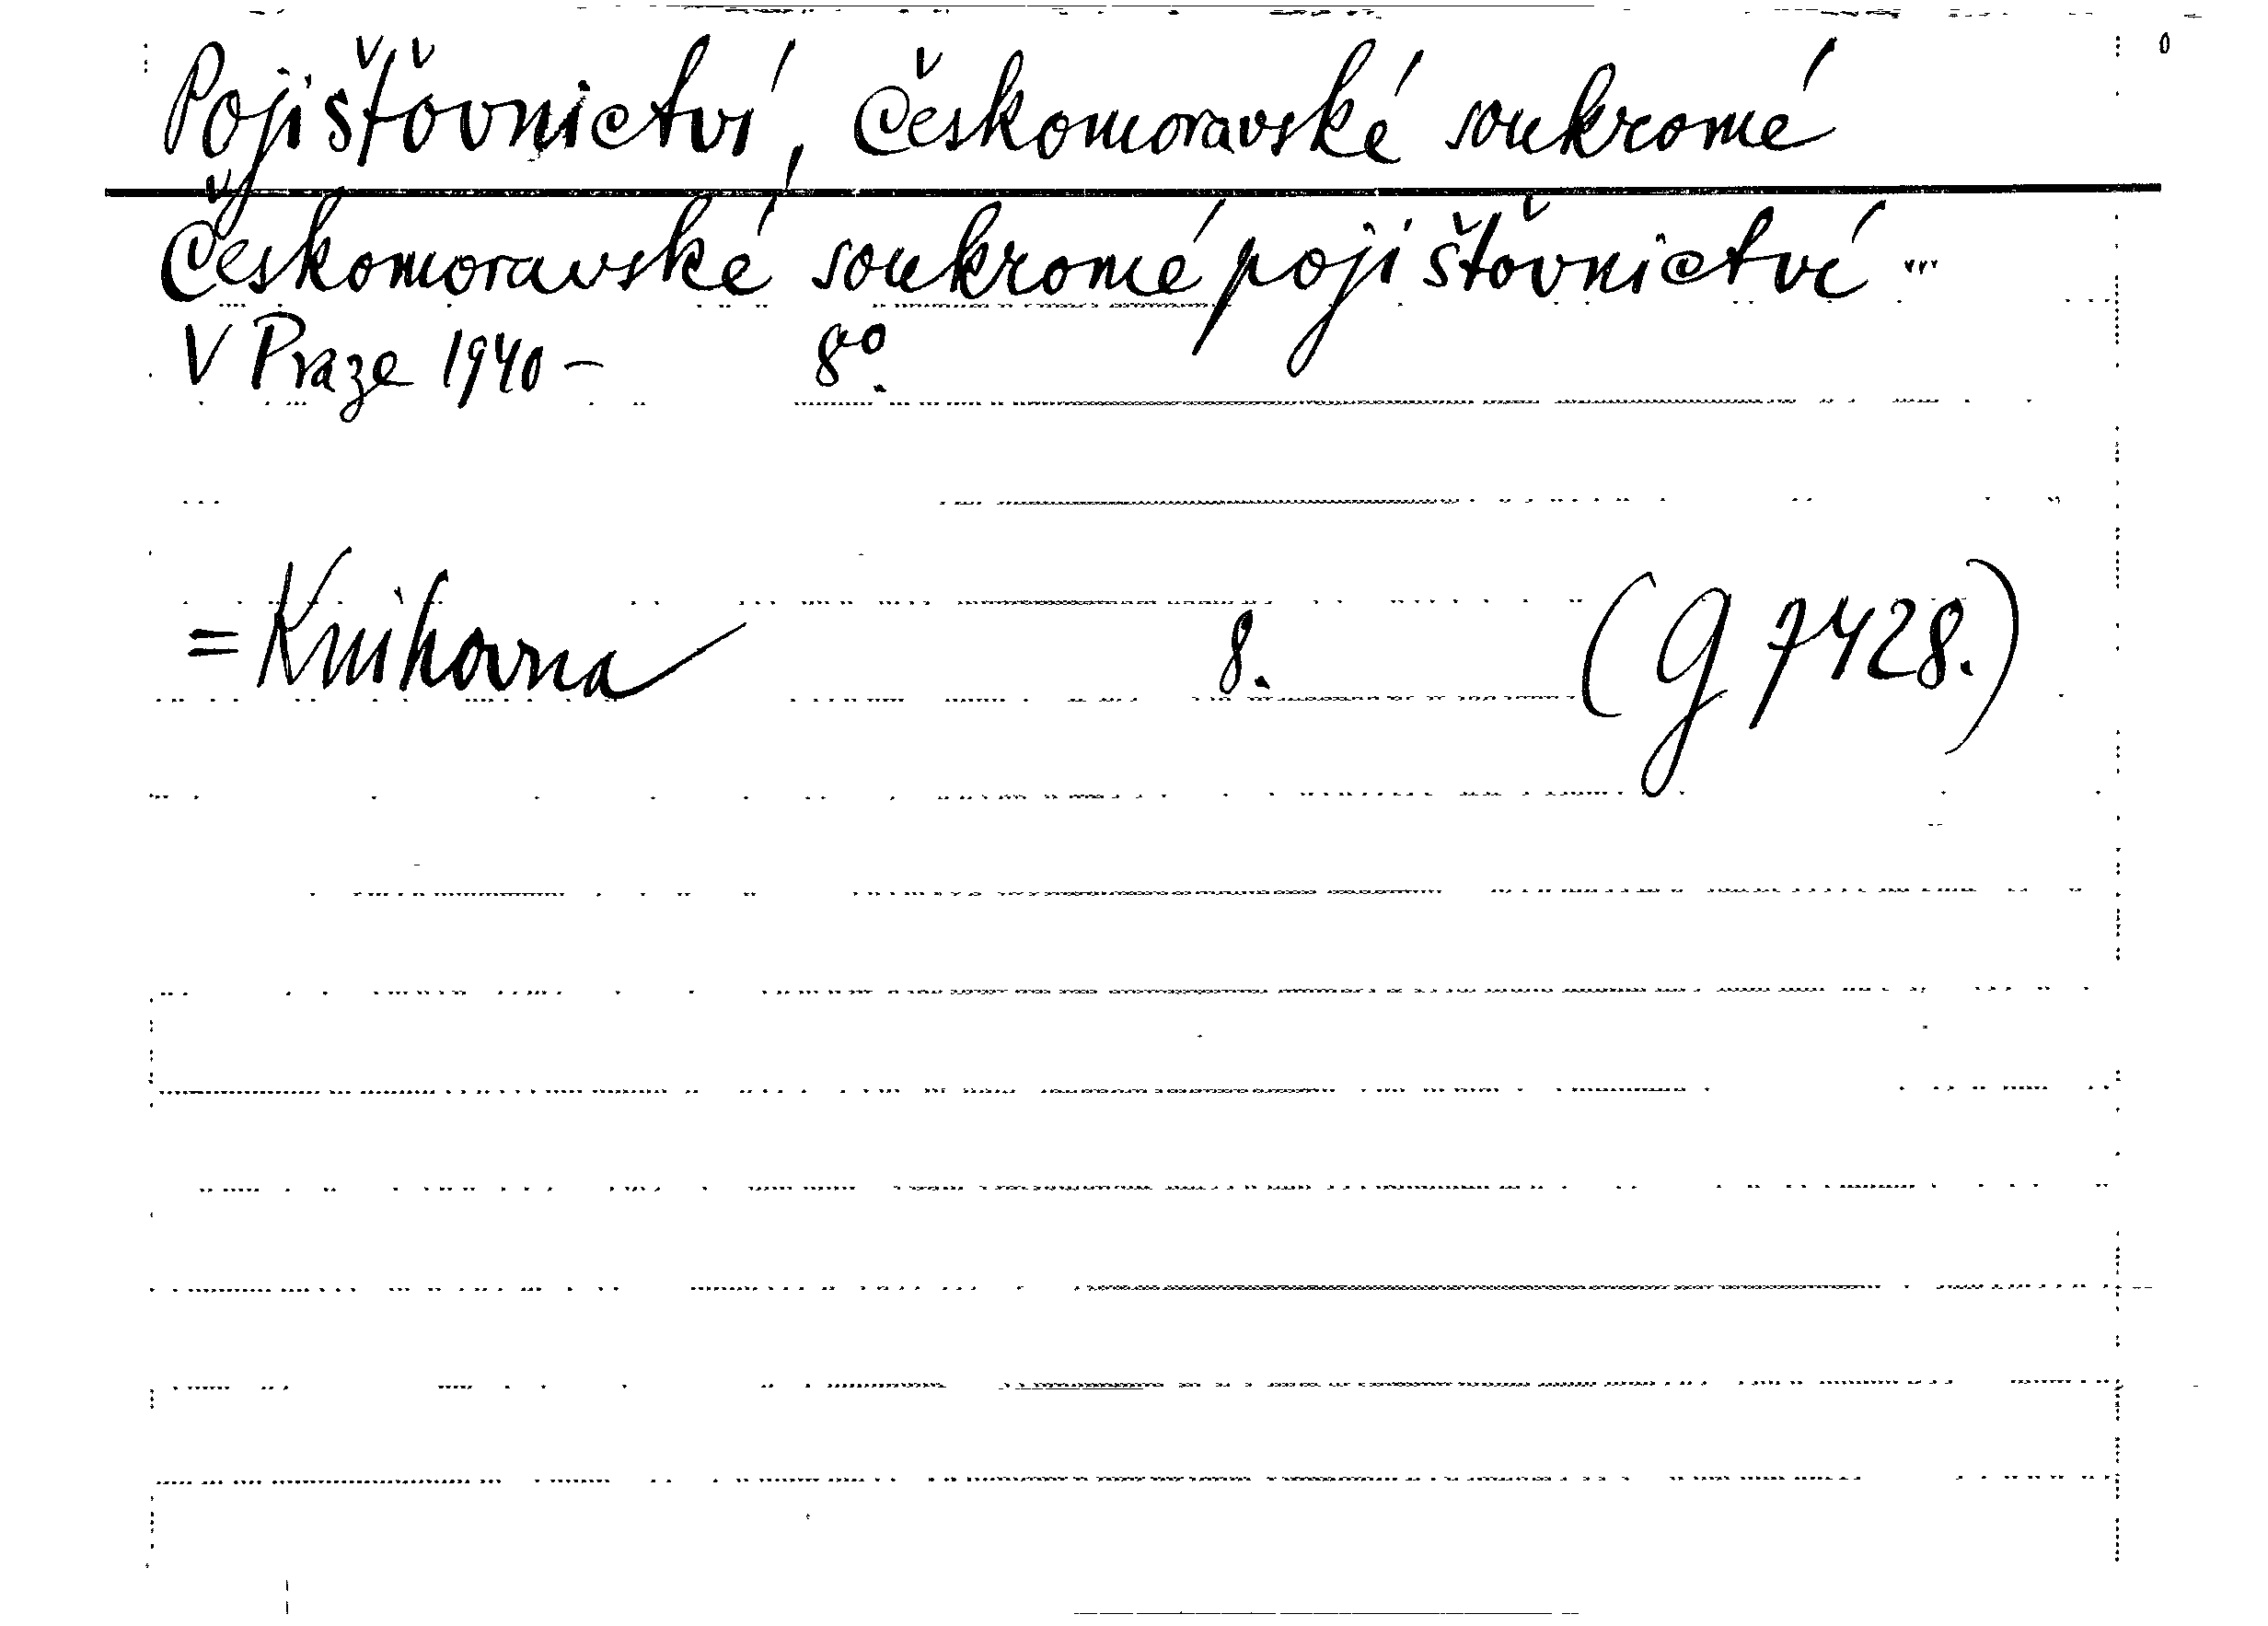 Pojišťovnictví, Českomoravské soukromé
Českomoravské soukromé pojišťovnictví ...
V Praze 1940 – 8°.
= Knihovna 8. (G 7428.)